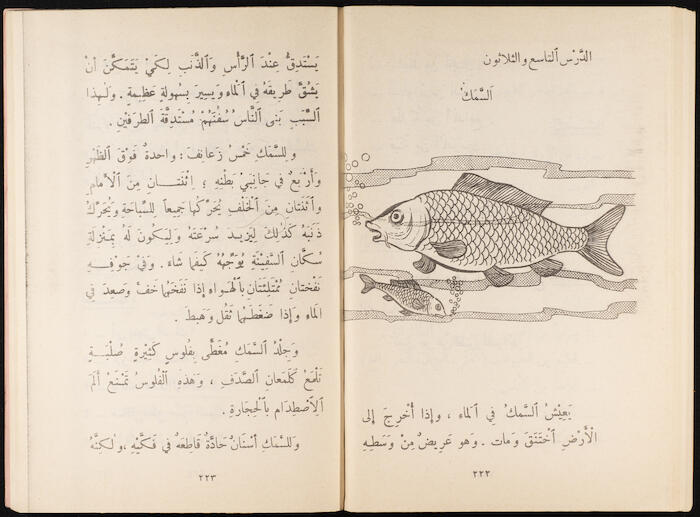 الدَّرْسُ ٱلتاسع والثلاثون
اَلسَّمَكُ
يَعِيْشُ ٱلسَّمَكُ فِي ٱلمَاءِ ، وإِذا أُخْرِجَ إِلى
الْأَرْضِ ٱخْتَنَقَ وَمات . وهو عَرِيضٌ مِنْ وَسَطِهِ
٢٢٢
يَسْتَدِقُّ عِنْدَ ٱلرَّأْسِ وَٱلذَّنَبِ لِكَيْ يَتَمَكَّنَ أَنْ
يَشُقَّ طَرِيقَهُ فِي ٱلمَاءِ وَيَسِيرَ بِسُهولَةٍ عَظِيمَةٍ . وَلِهذا
ٱلسَّبَبِ بَنى ٱلنَّاسُ سُفُنَهُمْ مُسْتَدِقَّةَ ٱلطَرَفَيْنِ .
وَلِلسَّمَكِ خَمْسُ زَعانِفَ : واحدةٌ فَوْقَ ٱلظَّهْرِ
وَأَرْبَعٌ فِي جَانِبَيْ بَطْنِهِ ؛ اِثْنَتَانِ مِنَ ٱلْأَمامِ
وٱثْنَتانِ مِنَ ٱلْخَلْفِ يُحَرِّكُها جَميعاً لِلسِّباحَةِ وَيُحَرِّكُ
ذَنَبَهُ كَذَلِكَ لِيَزِيدَ سُرْعَتَهُ وَلِيَكُونَ لَهُ بِمَنْزِلَةِ
سُكَّانِ ٱلسَّفِينَةِ يُوَجِّهُهُ كَيفَما شَاءَ . وَفِيْ جَوْفِهِ
نَفْخَتانِ مُمْتَلِئَتانِ بِٱلْهَواءِ إِذا نَفَخَهُما خَفَّ وَصَعِدَ في
ٱلمَاءِ وَإِذا ضَغَطَهُما ثَقُلَ وَهَبَطَ .
وَجِلْدُ ٱلسَّمَكِ مُغَطًّى بِفُلوسٍ كَثِيْرَةٍ صُلْبَةٍ
تَلْمَعُ كَلَمَعانِ ٱلصَّدَفِ ، وَهَذِهِ ٱلْفُلوسُ تَمْنَعُ أَلَمَ
ٱلِاصْطِدَامِ بِٱلْحِجَارَةِ .
وَلِلسَّمَكِ أَسْنَانٌ حَادَّةٌ قَاطِعَةٌ في فَكَّيْهِ ، وَلكِنَّهُ
٢٢٣